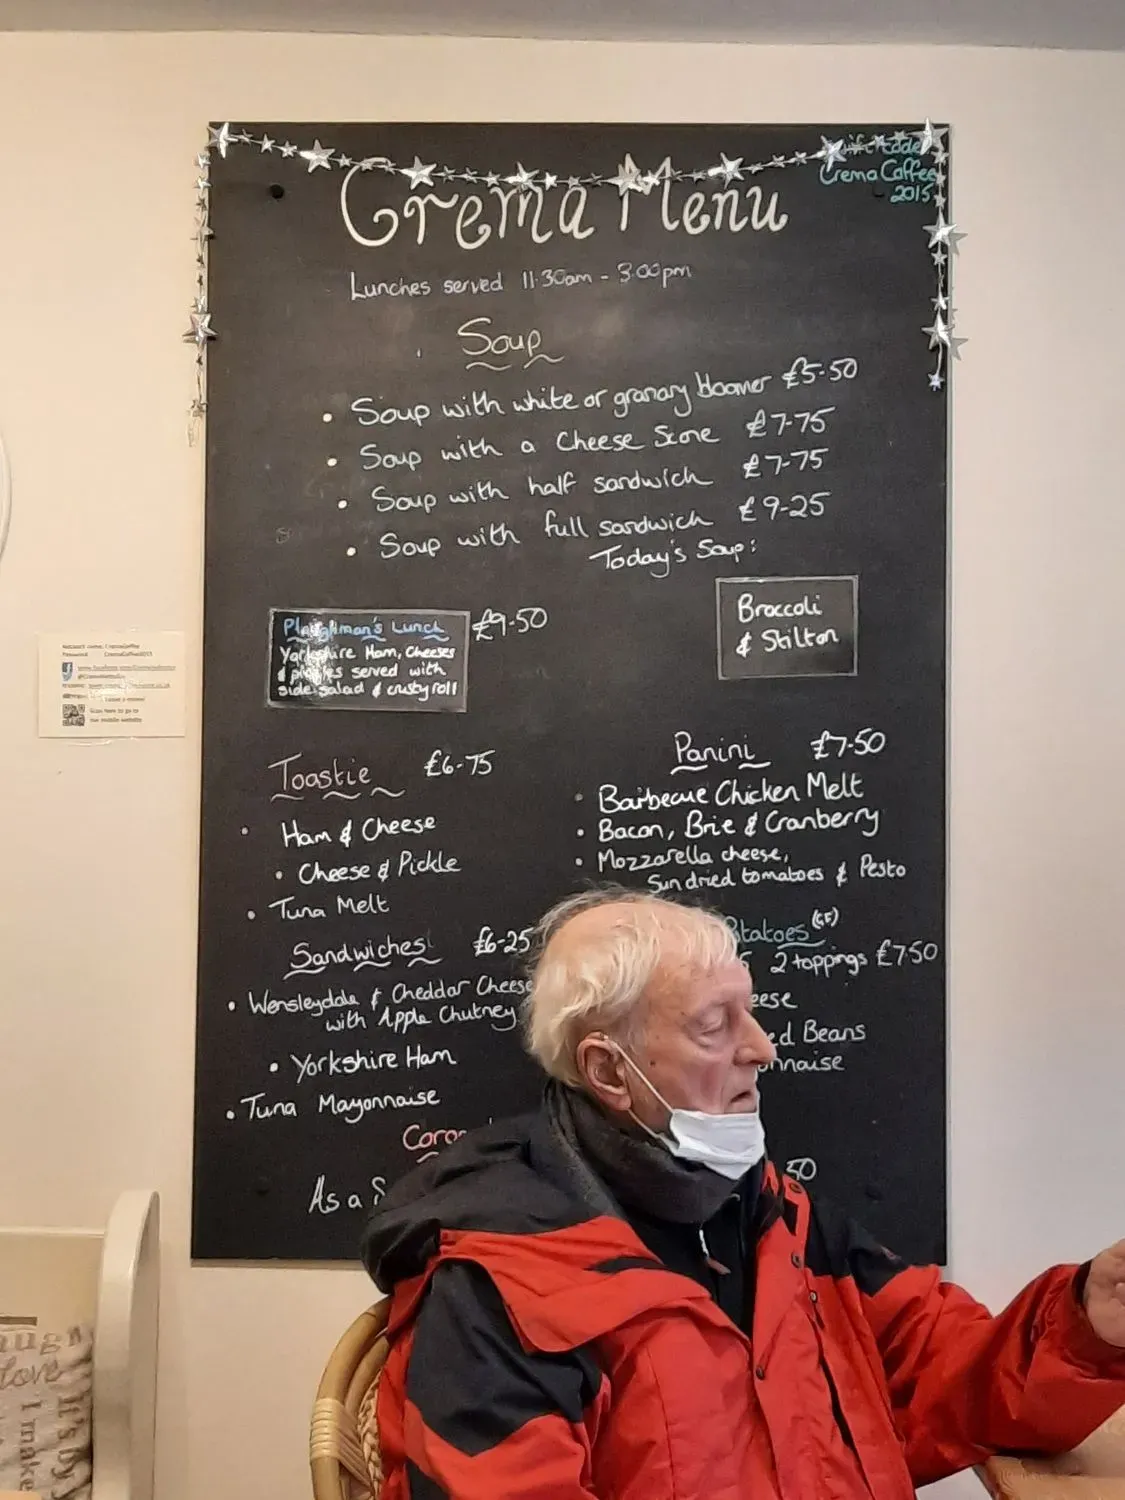 Crema Coffee
2015
Crema Menu
Lunches served 11.30am - 3.00pm
Soup
• Soup with white or granary bloomer £5-50
• Soup with a Cheese Scone £7-75
• Soup with half sandwich £7-75
• Soup with full sandwich £9-25
Today's Soup:
Broccoli
& Stilton
Ploughman's Lunch £9-50
Yorkshire Ham, Cheeses
& pickles served with
side salad & crusty roll
Toastie £6-75
• Ham & Cheese
• Cheese & Pickle
• Tuna Melt
Sandwiches £6-25
• Wensleydale & Cheddar Cheese
with Apple Chutney
• Yorkshire Ham
• Tuna Mayonnaise
As a
Panini £7-50
• Barbecue Chicken Melt
• Bacon, Brie & Cranberry
• Mozzarella cheese,
Sundried tomatoes & Pesto
(GF)
2 toppings £7-50
Beans
50
love
I make
It's by